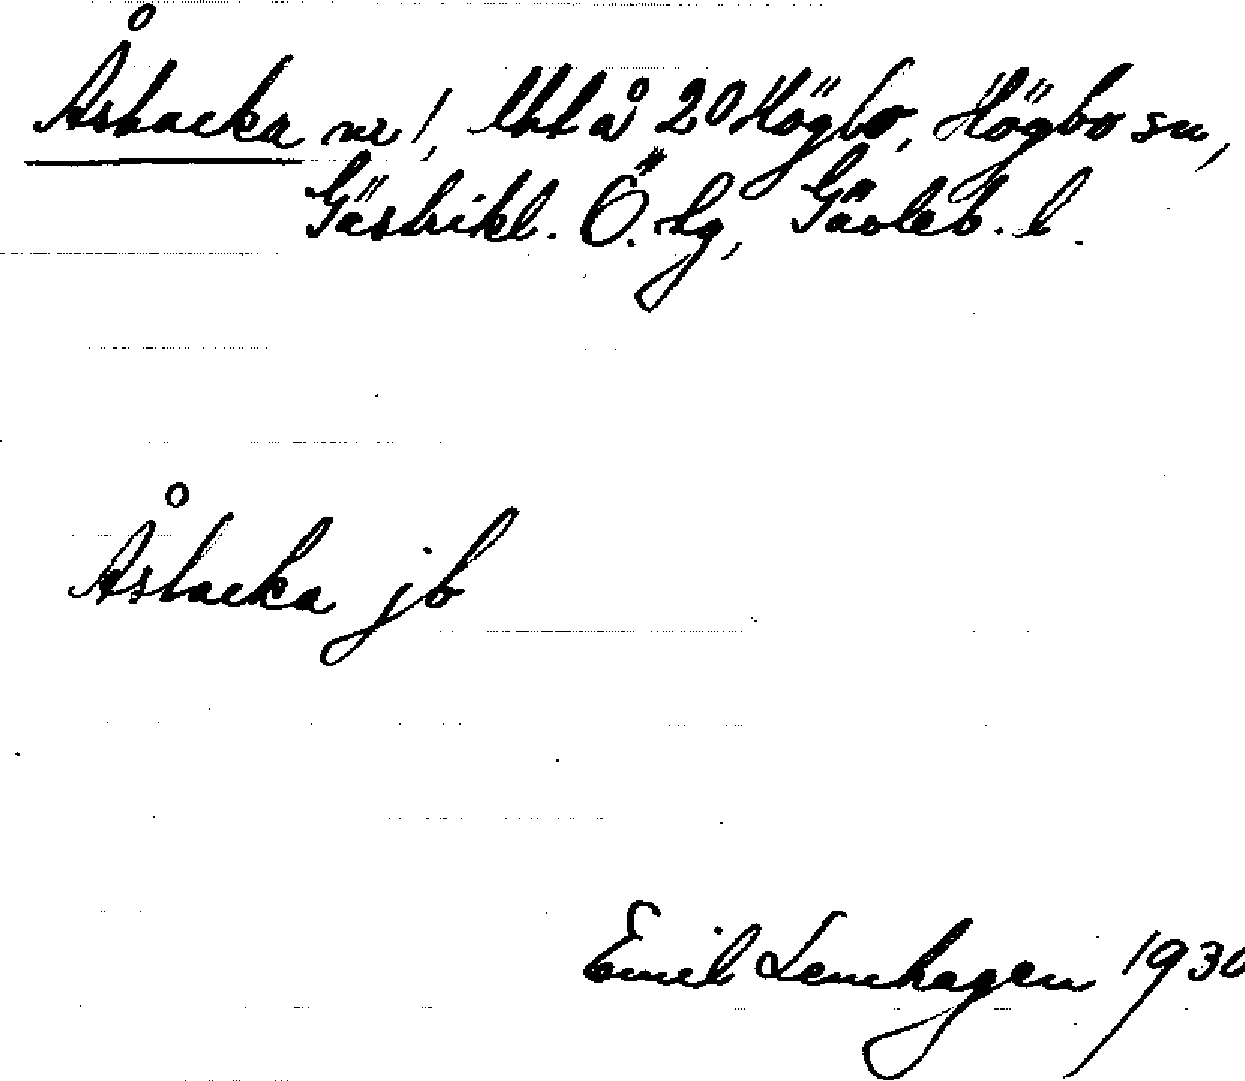 Åsbacka nr 1, lht å 20 Högbo, Högbo sn,
Gästrikl. Ö. tg, Gävleb. l.
Åsbacka jb
Emil Lemhagen 1930